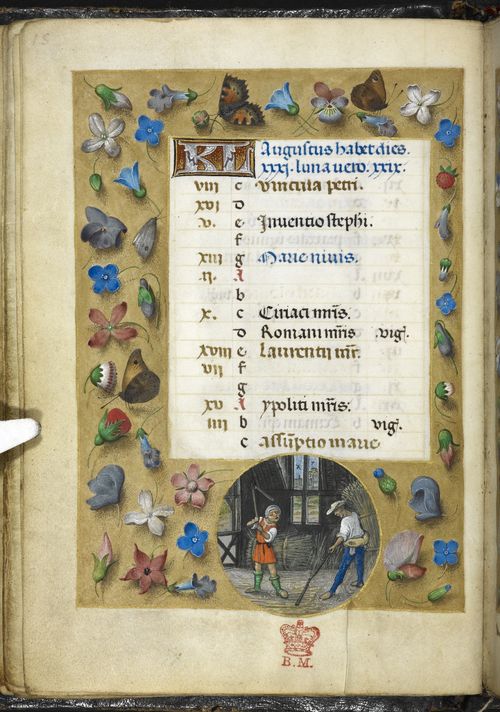 KL Augustus habet dies.
xxxj. luna vero. xxix.
viii c vincula petri.
xvi d
v. e Inventio stephi.
f
xiii g Marie nivis.
ii. A
b
x. c Ciriaci mris.
d Romani mris vigl.
xviii e Laurentii mr.
vii f
g
xv A ypoliti mris.
iiii b vigl.
c assūptio marie
B.M.